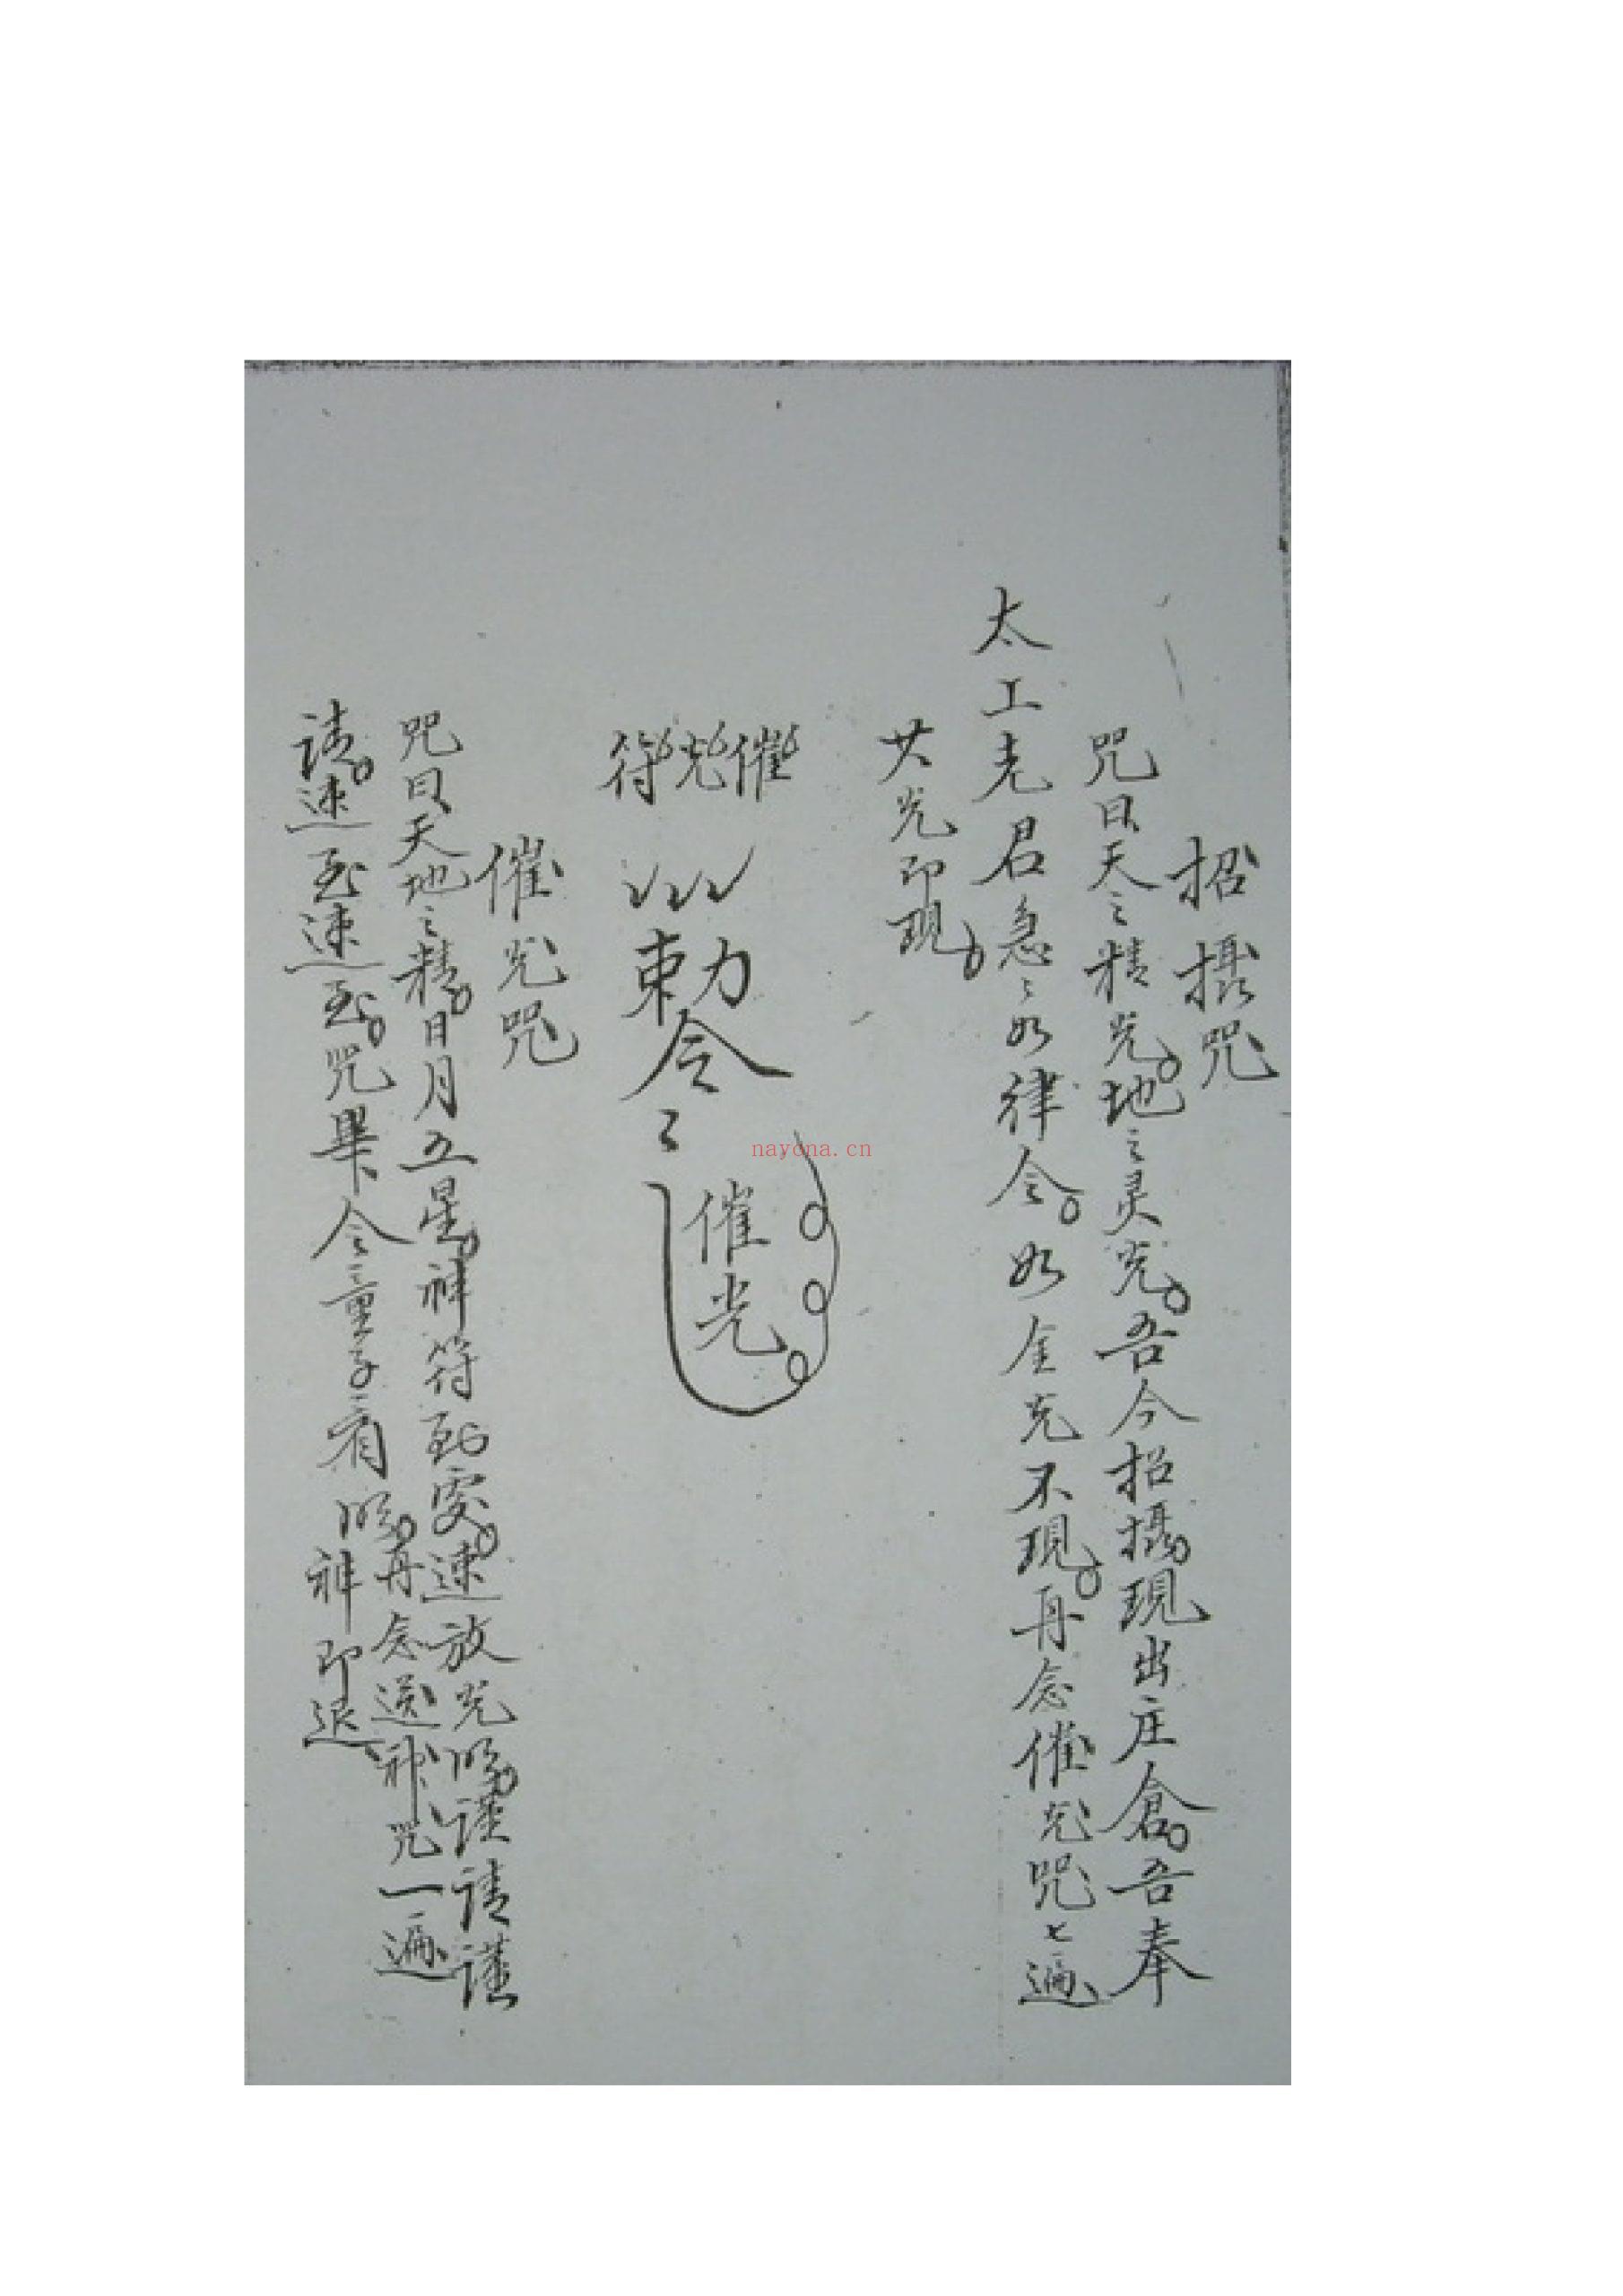 招攝咒
咒曰天之精光地之灵光吾今招攝現出庄倉吾奉
太上老君急々如律令如金光不現再念催光咒七遍
其光即現
催光符
勅令
催光
催光咒
咒曰天地之精日月五星神符到處速放光明謹請謹
請速至速至咒畢令童子看明再念送神咒一遍
神即退
nayona.cn